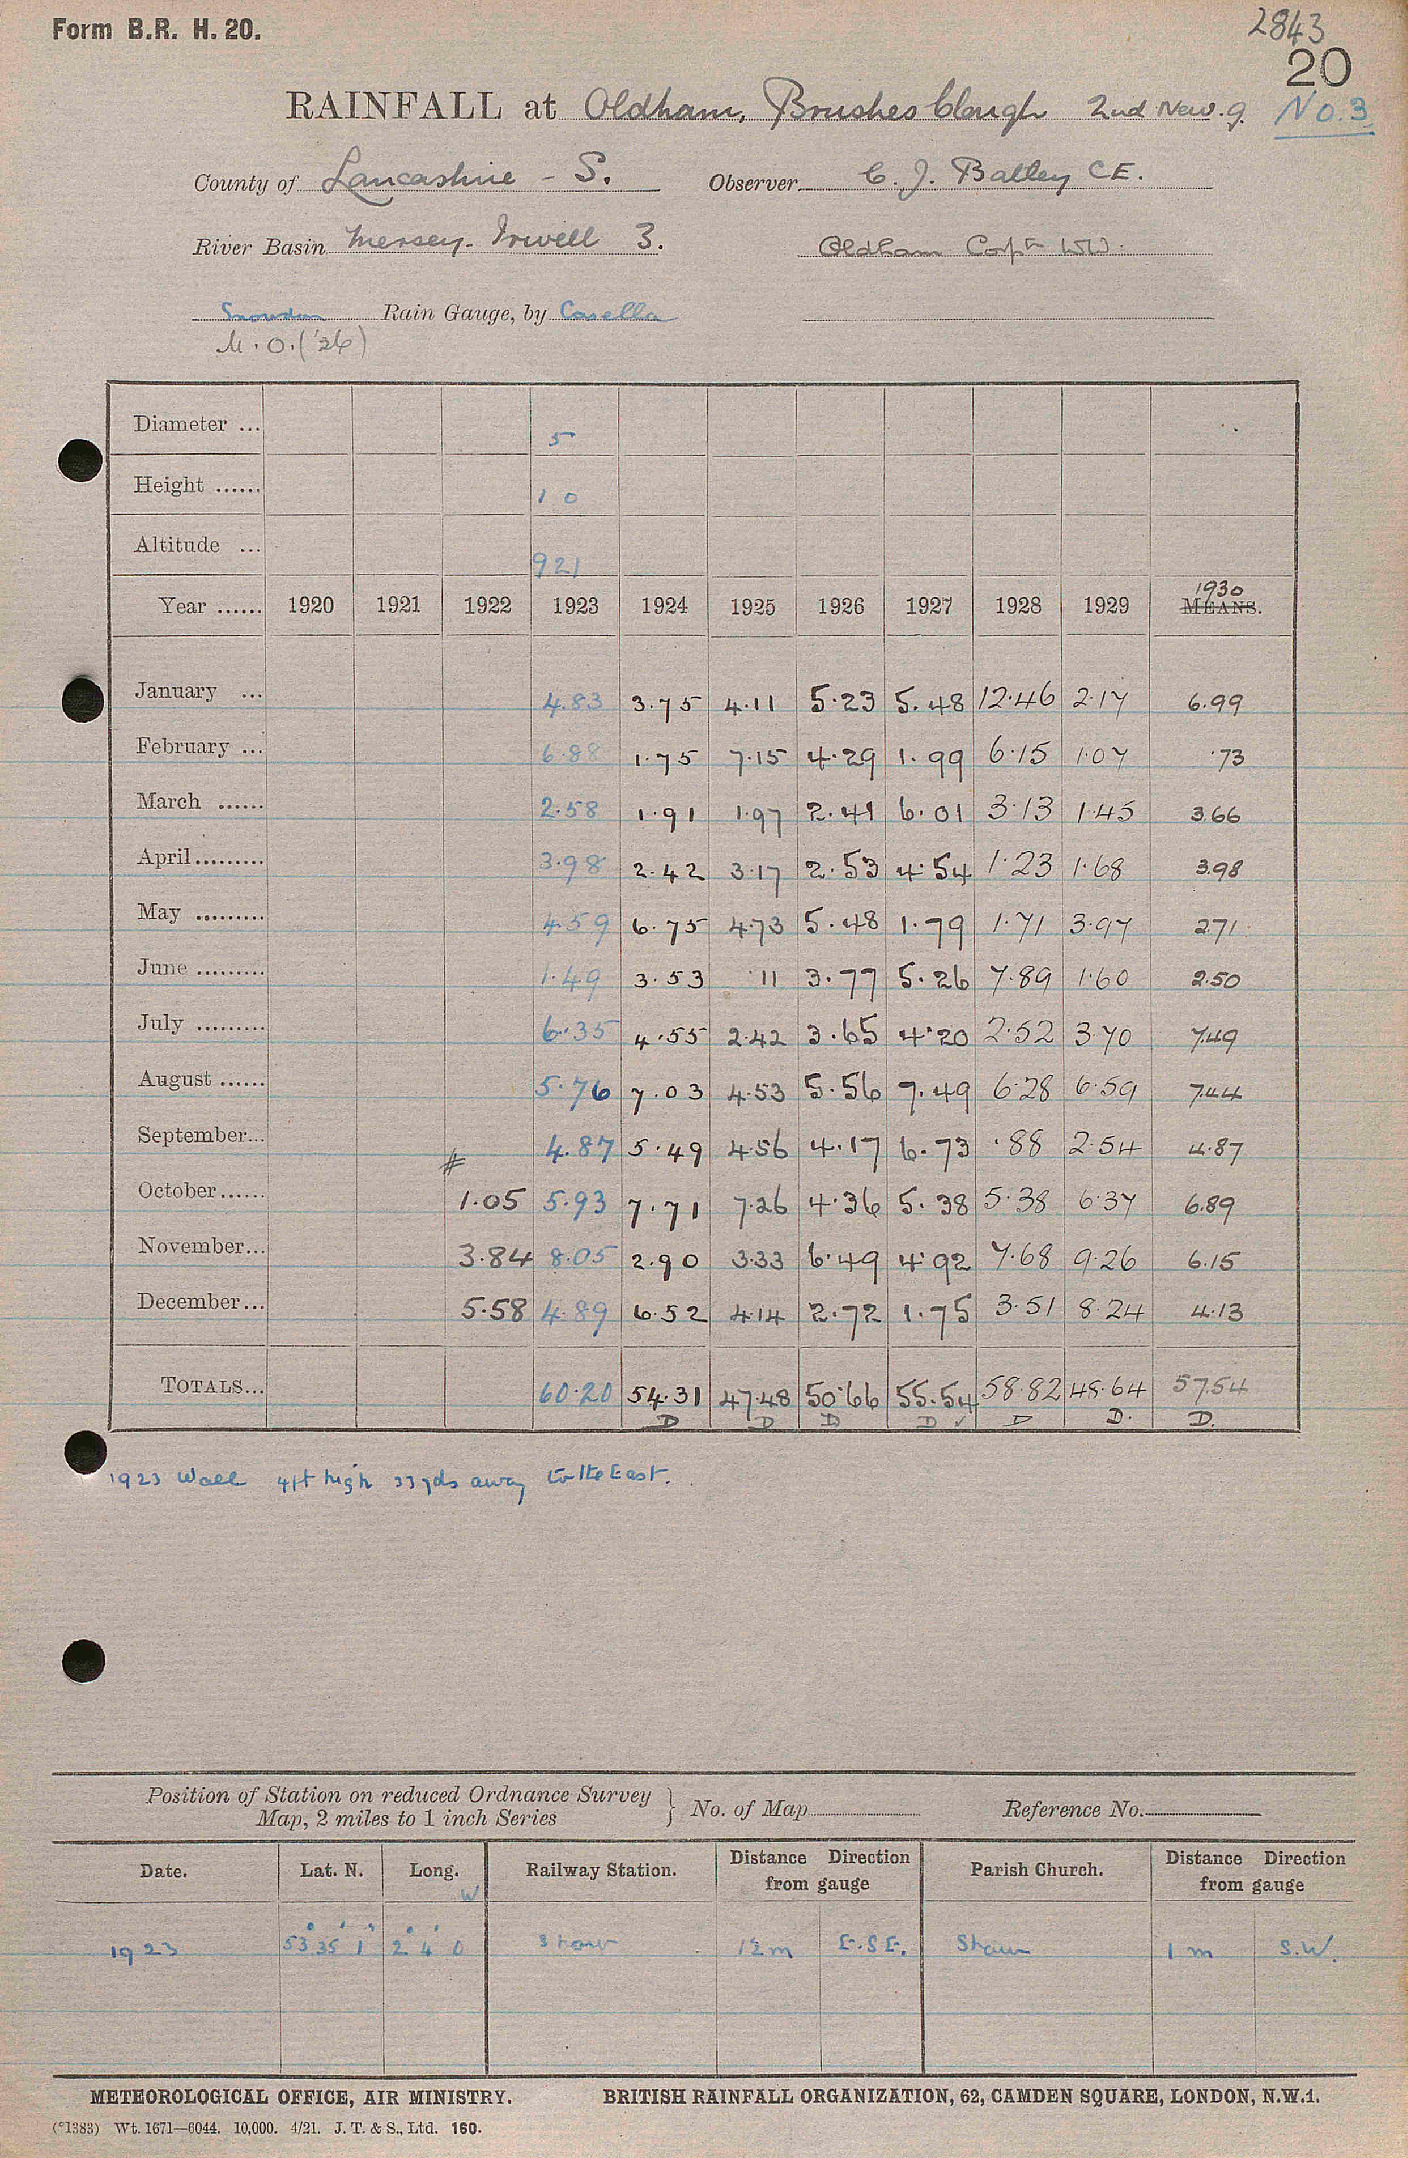 Form B.R. H. 20.
2843
20
RAINFALL at Oldham, Brushes Clough 2nd New. g. No. 3
County of Lancashire - S. Observer C. J. Batley C.E.
River Basin Mersey - Irwell 3. Oldham Corpn WW.
Snowdon Rain Gauge, by Casella
M.O. ('26)
Diameter ... 5
Height ...... 1 0
Altitude ... 921
Year ...... 1920 1921 1922 1923 1924 1925 1926 1927 1928 1929 1930 MEANS.
January ... 4.83 3.75 4.11 5.23 5.48 12.46 2.17 6.99
February ... 6.88 1.75 7.15 4.29 1.99 6.15 1.07 .73
March ...... 2.58 1.91 1.97 2.41 6.01 3.13 1.45 3.66
April ......... 3.98 2.42 3.17 2.53 4.54 1.23 1.68 3.98
May ......... 4.59 6.75 4.73 5.48 1.79 1.71 3.97 2.71
June ......... 1.49 3.53 .11 3.77 5.26 7.89 1.60 2.50
July ......... 6.35 4.55 2.42 3.65 4.20 2.52 3.70 7.49
August ...... 5.76 7.03 4.53 5.56 7.49 6.28 6.59 7.44
September... 4.87 5.49 4.56 4.17 6.73 .88 2.54 4.87
October ...... # 1.05 5.93 7.71 7.26 4.36 5.38 5.38 6.37 6.89
November... 3.84 8.05 2.90 3.33 6.49 4.92 7.68 9.26 6.15
December... 5.58 4.89 6.52 4.14 2.72 1.75 3.51 8.24 4.13
TOTALS... 60.20 54.31 47.48 50.66 55.54 58.82 48.64 57.54
D D D D ✓ D D. D.
1923 Wall 4ft high 33yds away to the East.
Position of Station on reduced Ordnance Survey
Map, 2 miles to 1 inch Series } No. of Map Reference No.
Date. Lat. N. Long. W Railway Station. Distance Direction from gauge Parish Church. Distance Direction from gauge
1923 53° 35' 1" 2° 4' 0 Shaw 1½ m E.S.E. Shaw 1 m S.W.
METEOROLOGICAL OFFICE, AIR MINISTRY. BRITISH RAINFALL ORGANIZATION, 62, CAMDEN SQUARE, LONDON, N.W.1.
(*1383) Wt. 1671—6044. 10,000. 4/21. J. T. & S., Ltd. 160.